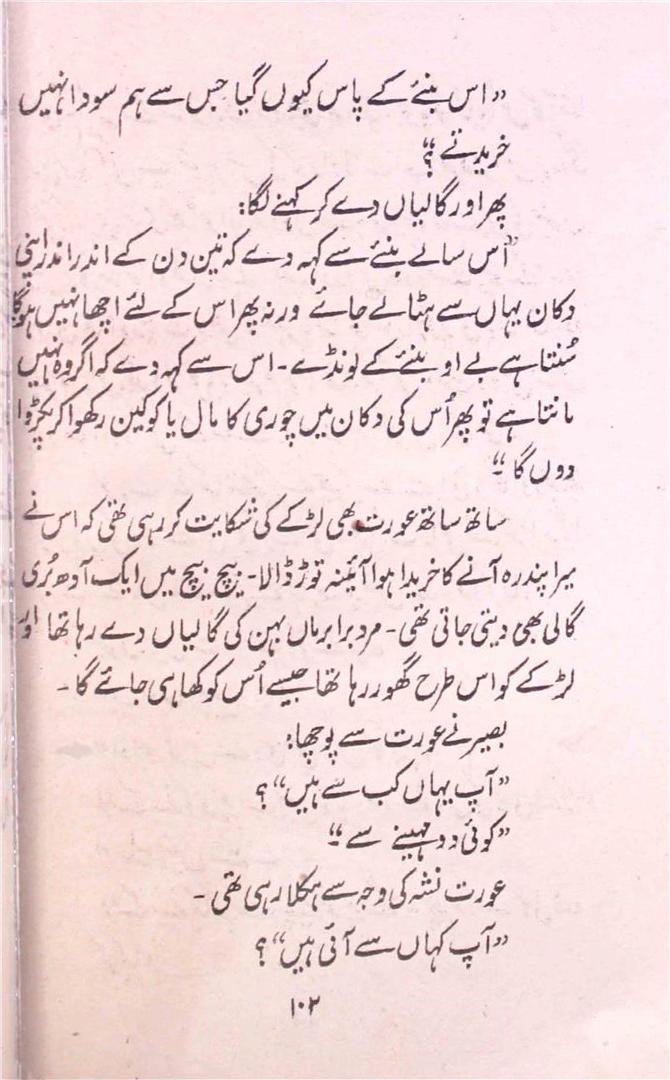 ”اس بنئے کے پاس کیوں گیا جس سے ہم سودا نہیں
خریدتے؟“
پھر اور گالیاں دے کر کہنے لگا:
”اُس سالے بنئے سے کہہ دے کہ تین دن کے اندر اندر اپنی
دکان یہاں سے ہٹالے جائے ورنہ پھر اس کے لئے اچھا نہیں ہوگا
سُنتا ہے بے او بنئے کے لونڈے۔ اس سے کہہ دے کہ اگر وہ نہیں
مانتا ہے تو پھر اُس کی دکان میں چوری کا مال یا کوکین رکھوا کر پکڑوا
دوں گا۔“
ساتھ ساتھ عورت بھی لڑکے کی شکایت کر رہی تھی کہ اس نے
میرا پندرہ آنے کا خریدا ہوا آئینہ توڑ ڈالا۔ بیچ بیچ میں ایک آدھ بُری
گالی بھی دیتی جاتی تھی۔ مرد برابر ماں بہن کی گالیاں دے رہا تھا اور
لڑکے کو اس طرح گھور رہا تھا جیسے اُس کو کھا ہی جائے گا۔
بصیر نے عورت سے پوچھا:
”آپ یہاں کب سے ہیں“؟
”کوئی دو مہینے سے۔“
عورت نشہ کی وجہ سے ہکلا رہی تھی۔
”آپ کہاں سے آئی ہیں“؟
۱۰۳